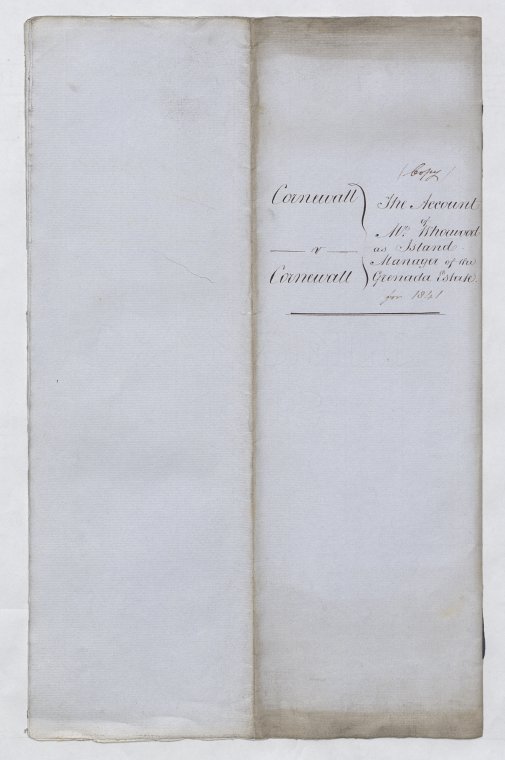 (Copy)
Cornewall
v
Cornewall
The Account
of
Mr. Whorwood
as Island
Manager of the
Grenada Estate.
for 1841